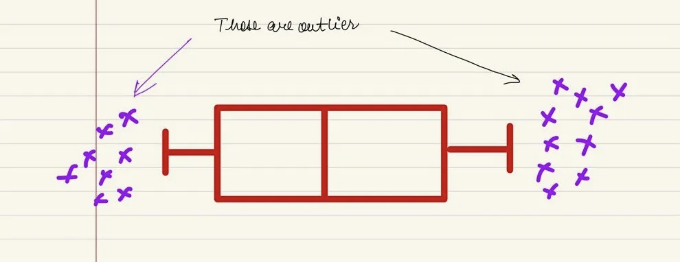 These are outlier